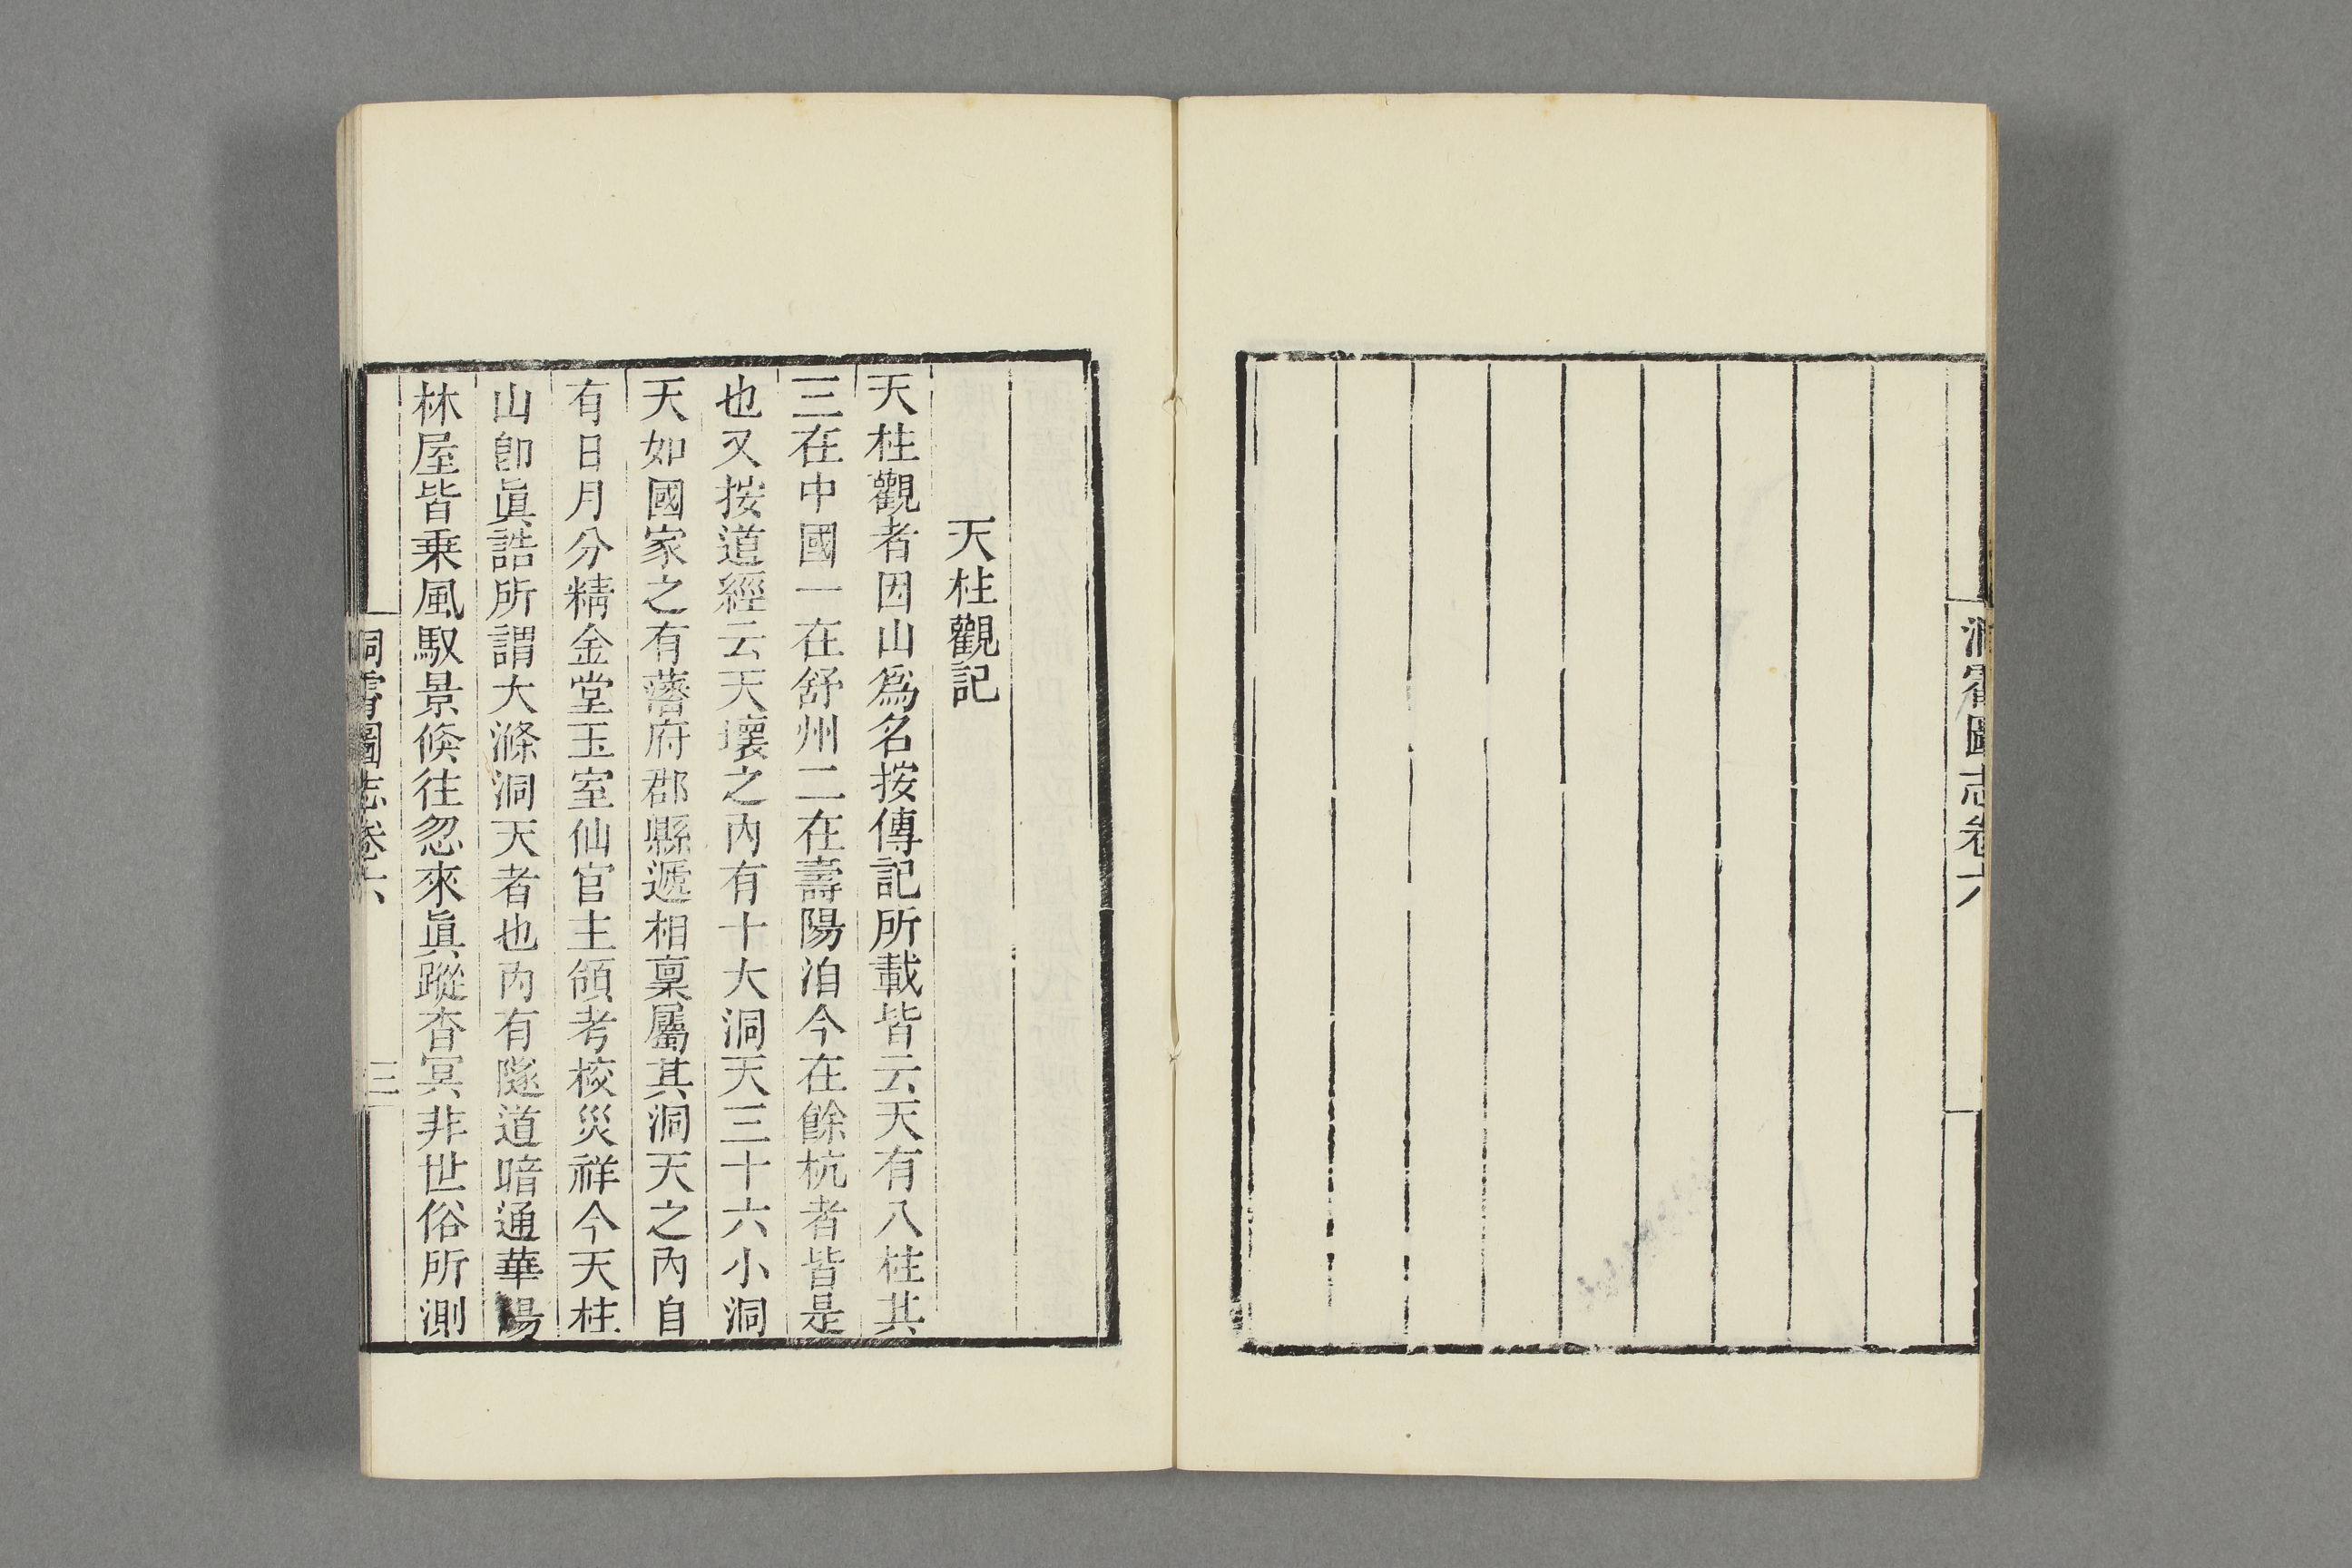 洞霄圖志卷六
天柱觀記
天柱觀者因山爲名按傳記所載皆云天有八柱其
三在中國一在舒州二在壽陽洎今在餘杭者皆是
也又按道經云天壤之內有十大洞天三十六小洞
天如國家之有藩府郡縣遞相稟屬其洞天之內自
有日月分精金堂玉室仙官主領考校災祥今天柱
山卽眞誥所謂大滌洞天者也內有隧道暗通華陽
林屋皆乗風馭景倐往忽來眞蹤杳冥非世俗所測
洞霄圖志卷六
三